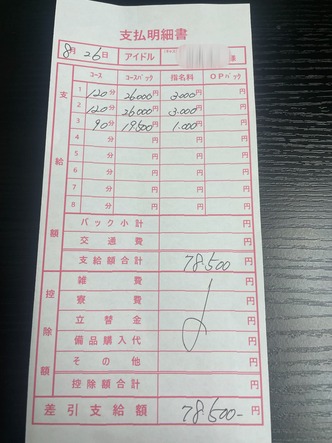 支払明細書
8月26日 アイドル 様
コース コースバック 指名料 OPバック
支給額
1 120分 26000円 3000円 円
2 120分 26000円 3.000円 円
3 90分 19.500円 1.000円 円
4 分 円 円 円
5 分 円 円 円
6 分 円 円 円
7 分 円 円 円
8 分 円 円 円
バック小計 円
交通費 円
支給額合計 78.500 円
控除額
雑費 円
寮費 円
立替金 円
備品購入代 円
その他 円
控除額合計 円
差引支給額 78.500- 円